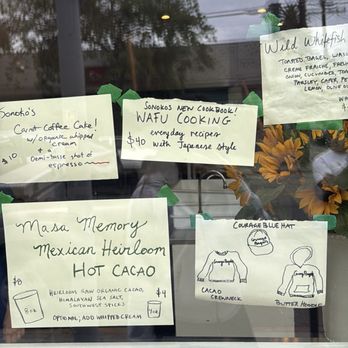 Sonoko's
Carrot Coffee Cake!
w/ organic whipped
cream
+
Demi-tasse shot of
espresso
$10
SONOKOS NEW COOKBOOK!
WAFU COOKING
$40
everyday recipes
with Japanese Style
Wild Whitefish
TOASTED BAGEL, WASABI
CRÈME FRAICHE, FRESH
ONION, CUCUMBER, TOMATO
PARSLEY, CAPER,
LEMON, OLIVE OIL
Masa Memory
Mexican Heirloom
HOT CACAO
$8
HEIRLOOM RAW ORGANIC CACAO,
HIMALAYAN SEA SALT,
SOUTHWEST SPICES
$4
8oz
OPTIONAL; ADD WHIPPED CREAM
COURAGE BLUE HAT
CACAO
CREWNECK
BUTTER HOODIE